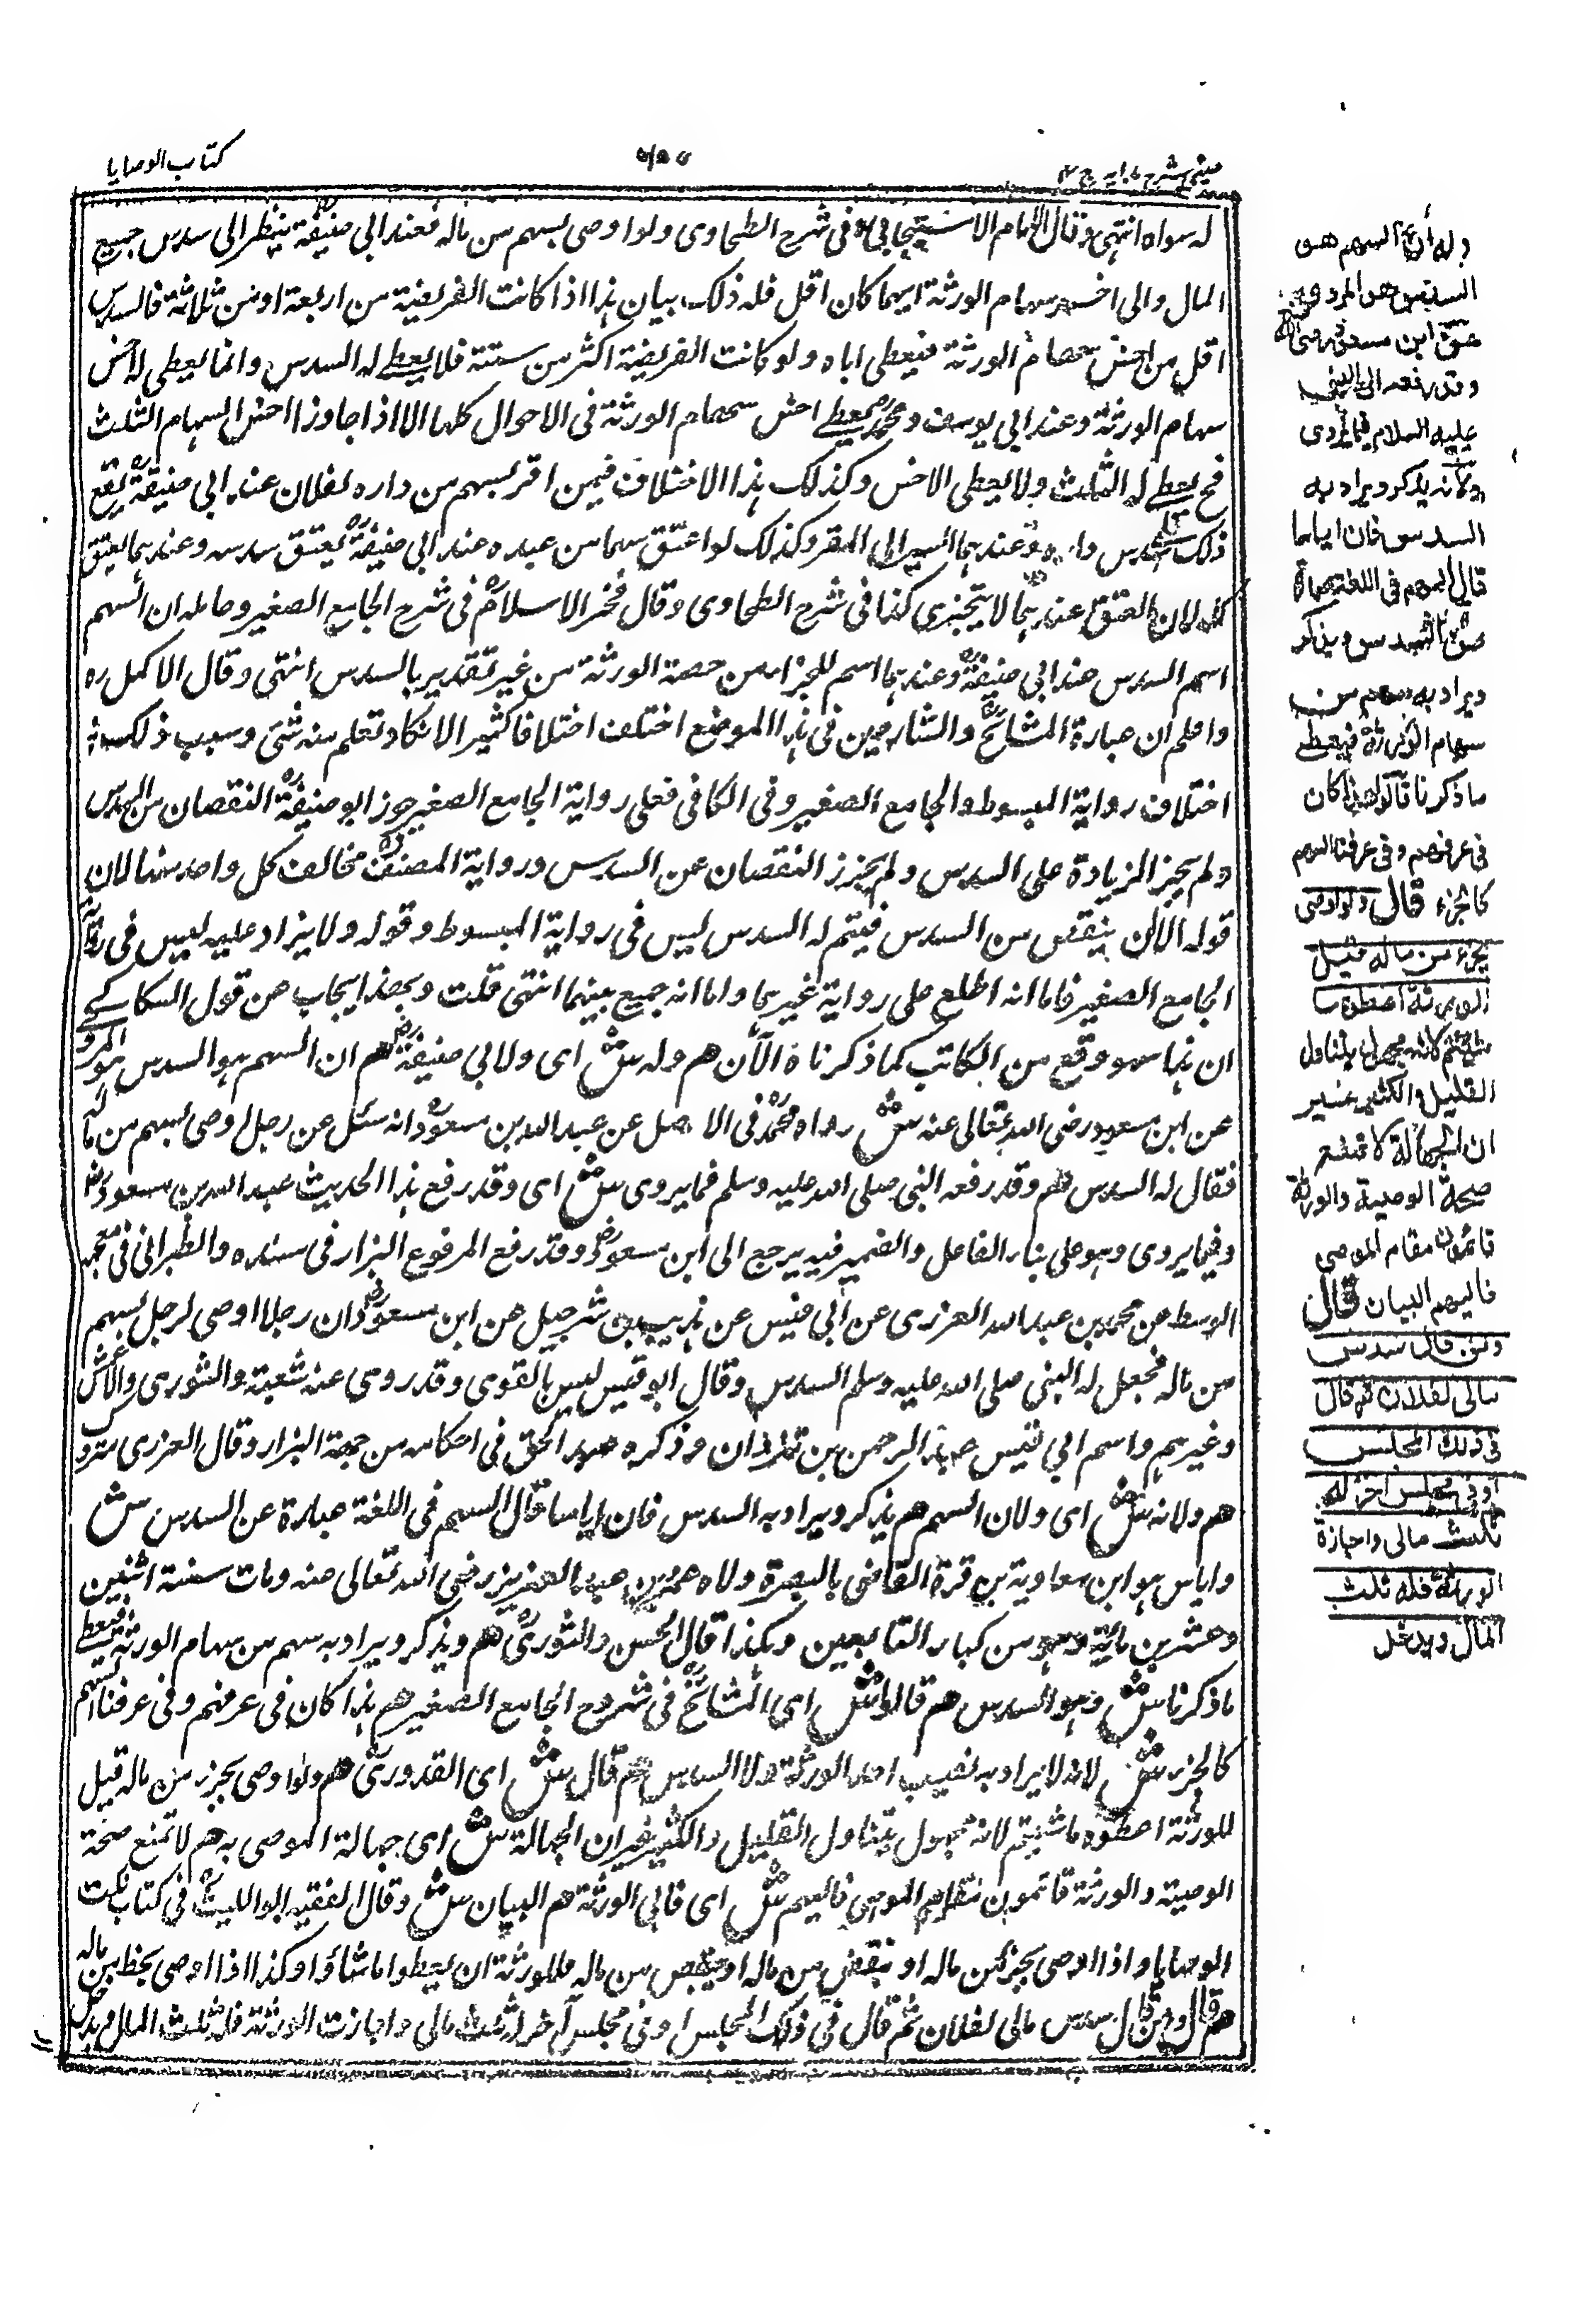 عینی شرح ہدایہ ج ۴
کتاب الوصایا
له سواه انتهى وقال الامام الاسبيجابي في شرح الطحاوى ولو اوصى بسهم من ماله فعند ابي حنيفة ينظر الى سدس جميع
المال والى اخس سهام الورثة ايهما كان اقل فله ذلك بيان هذا اذا كانت الفريضة من اربعة او من ثلاثة فالسدس
اقل من اخس سهام الورثة فيعطى اياه ولو كانت الفريضة اكثر من ستة فلا يعطے له السدس وانما يعطى لاخس
سهام الورثة وعند ابي يوسف ومحمد يعطے اخس سهام الورثة فى الاحوال كلها الا اذا جاوز الاخس السهام الثلث
فح يعطے له الثلث ولا يعطى الاخس وكذلك هذا الاختلاف فيمن اقر بسهم من داره لفلان عند ابي حنيفة يقع
ذلك سدس داره وعندهما السير الى المقر وكذلك لو اعتق سهما من عبده عند ابي حنيفة يعتق سدسه وعندهما يعتق
كله لان العتق عندهما لا يتجزى كذا فى شرح الطحاوى وقال فخر الاسلام فى شرح الجامع الصغير وحاصله ان السهم
اسم السدس عند ابي حنيفة وعندهما اسم للجزء من حصة الورثة من غير تقدير بالسدس انتهى وقال الاكمل ره
واعلم ان عبارة المشائخ والشارحين فى هذا الموضع اختلف اختلافا كثيرا لا تكاد تعلم منه شئ وسبب ذلك
اختلاف رواية المبسوط والجامع الصغير وفى الكافى فعلى رواية الجامع الصغير جوز ابو حنيفة النقصان من السدس
ولم يجز الزيادة على السدس ولم يجوز النقصان عن السدس ورواية المصنف مخالف كل واحد منهما لان
قوله الا ان ينقص من السدس فيتم له السدس ليس فى رواية المبسوط وقوله ولا يزاد عليه ليس فى رواية
الجامع الصغير فاما انه اطلع على رواية غيرهما واما انه جمع بينهما انتهى قلت وبهذا يجاب عن قول السكاكے
ان هذا سهو وقع من الكاتب كما ذكرناه الآن هم وله ش اى ولابي حنيفة هم ان السهم هو السدس هو المروى
عن ابن مسعود رضى الله تعالى عنه ش رواه محمد فى الاصل عن عبد الله بن مسعود انه سئل عن رجل اوصى بسهم من ماله
فقال له السدس هم وقد رفعه النبى صلى الله عليه وسلم فما يروى ش اى وقد رفع هذا الحديث عبد الله بن مسعود
وفيما يروى وهو على بناء الفاعل والضمير فيه يرجع الى ابن مسعود وقد رفع المرفوع البزار فى مسنده والطبرانى فى معجمه
الوسط عن محمد بن عبد الله العزرمى عن ابي قيس عن هذيل بن شرحبيل عن ابن مسعود ان رجلا اوصى لرجل بسهم
من ماله فجعل له النبى صلى الله عليه وسلم السدس وقال ابو قيس ليس بالقوى وقد روى عنه شعبة والثورى والاعمش
وغيرهم واسم ابي قيس عبد الرحمن بن ثروان وذكره عبد الحق فى احكامه من جهة البزار وقال العزرمى متروك
هم ولانه ش اى ولان السهم هم يذكر ويراد به السدس فان اياسا قال السهم فى اللغة عبارة عن السدس ش
واياس هو ابن معاوية بن قرة القاضى بالبصرة ولاه عمر بن عبد العزيز رضى الله تعالى عنه ومات سنة اثنين
وعشرين مائة وهو من كبار التابعين وهكذا قال الحسن والثورى هم ويذكر ويراد به سهم من سهام الورثة فيعطے
ما ذكرنا ش وهو السدس هم قالوا ش اى المشائخ فى شروح الجامع الصغير هم هذا كان فى عرفهم وفى عرفنا السهم
كالجزء ش لانه لا يراد به نصيب احد الورثة ولا السدس هم قال ش اى القدورى هم ولو اوصى بجزء من ماله قيل
للورثة اعطوه ما شئتم لانه مجهول يتناول القليل والكثير غير ان الجهالة ش اى جهالة الموصى به هم لا تمنع صحة
الوصية والورثة قائمون مقام الموصى فاليهم ش اى فالى الورثة هم البيان ش وقال الفقيه ابو الليث فى كتاب نكت
الوصايا واذا اوصى بجزء من ماله او بنقص من ماله فللورثة ان يعطوا ما شاؤا وكذا اذا اوصى بحظ من ماله
هم قال ومن قال سدس مالى لفلان ثم قال فى ذلك المجلس او فى مجلس آخر له ثلث مالى واجازت الورثة فله ثلث المال ويدخل
وله ان السهم هو
السدس هو المروى
عن ابن مسعود رضى الله
وقد رفعه الى النبى
عليه السلام فيما يروى
ولانه يذكر ويراد به
السدس فان اياسا
قال السهم فى اللغة عبارة
عن السدس ويذكر
ويراد به سهم من
سهام الورثة فيعطے
ما ذكرنا قالوا هذا كان
فى عرفهم وفى عرفنا السهم
كالجزء قال ولو اوصى
بجزء من ماله قيل
للورثة اعطوه ما
شئتم لانه مجهول يتناول
القليل والكثير غير
ان الجهالة لا تمنع
صحة الوصية والورثة
قائمون مقام الموصى
فاليهم البيان قال
ومن قال سدس
مالى لفلان ثم قال
فى ذلك المجلس
او فى مجلس آخر له
ثلث مالى واجازة
الورثة فله ثلث
المال ويدخل